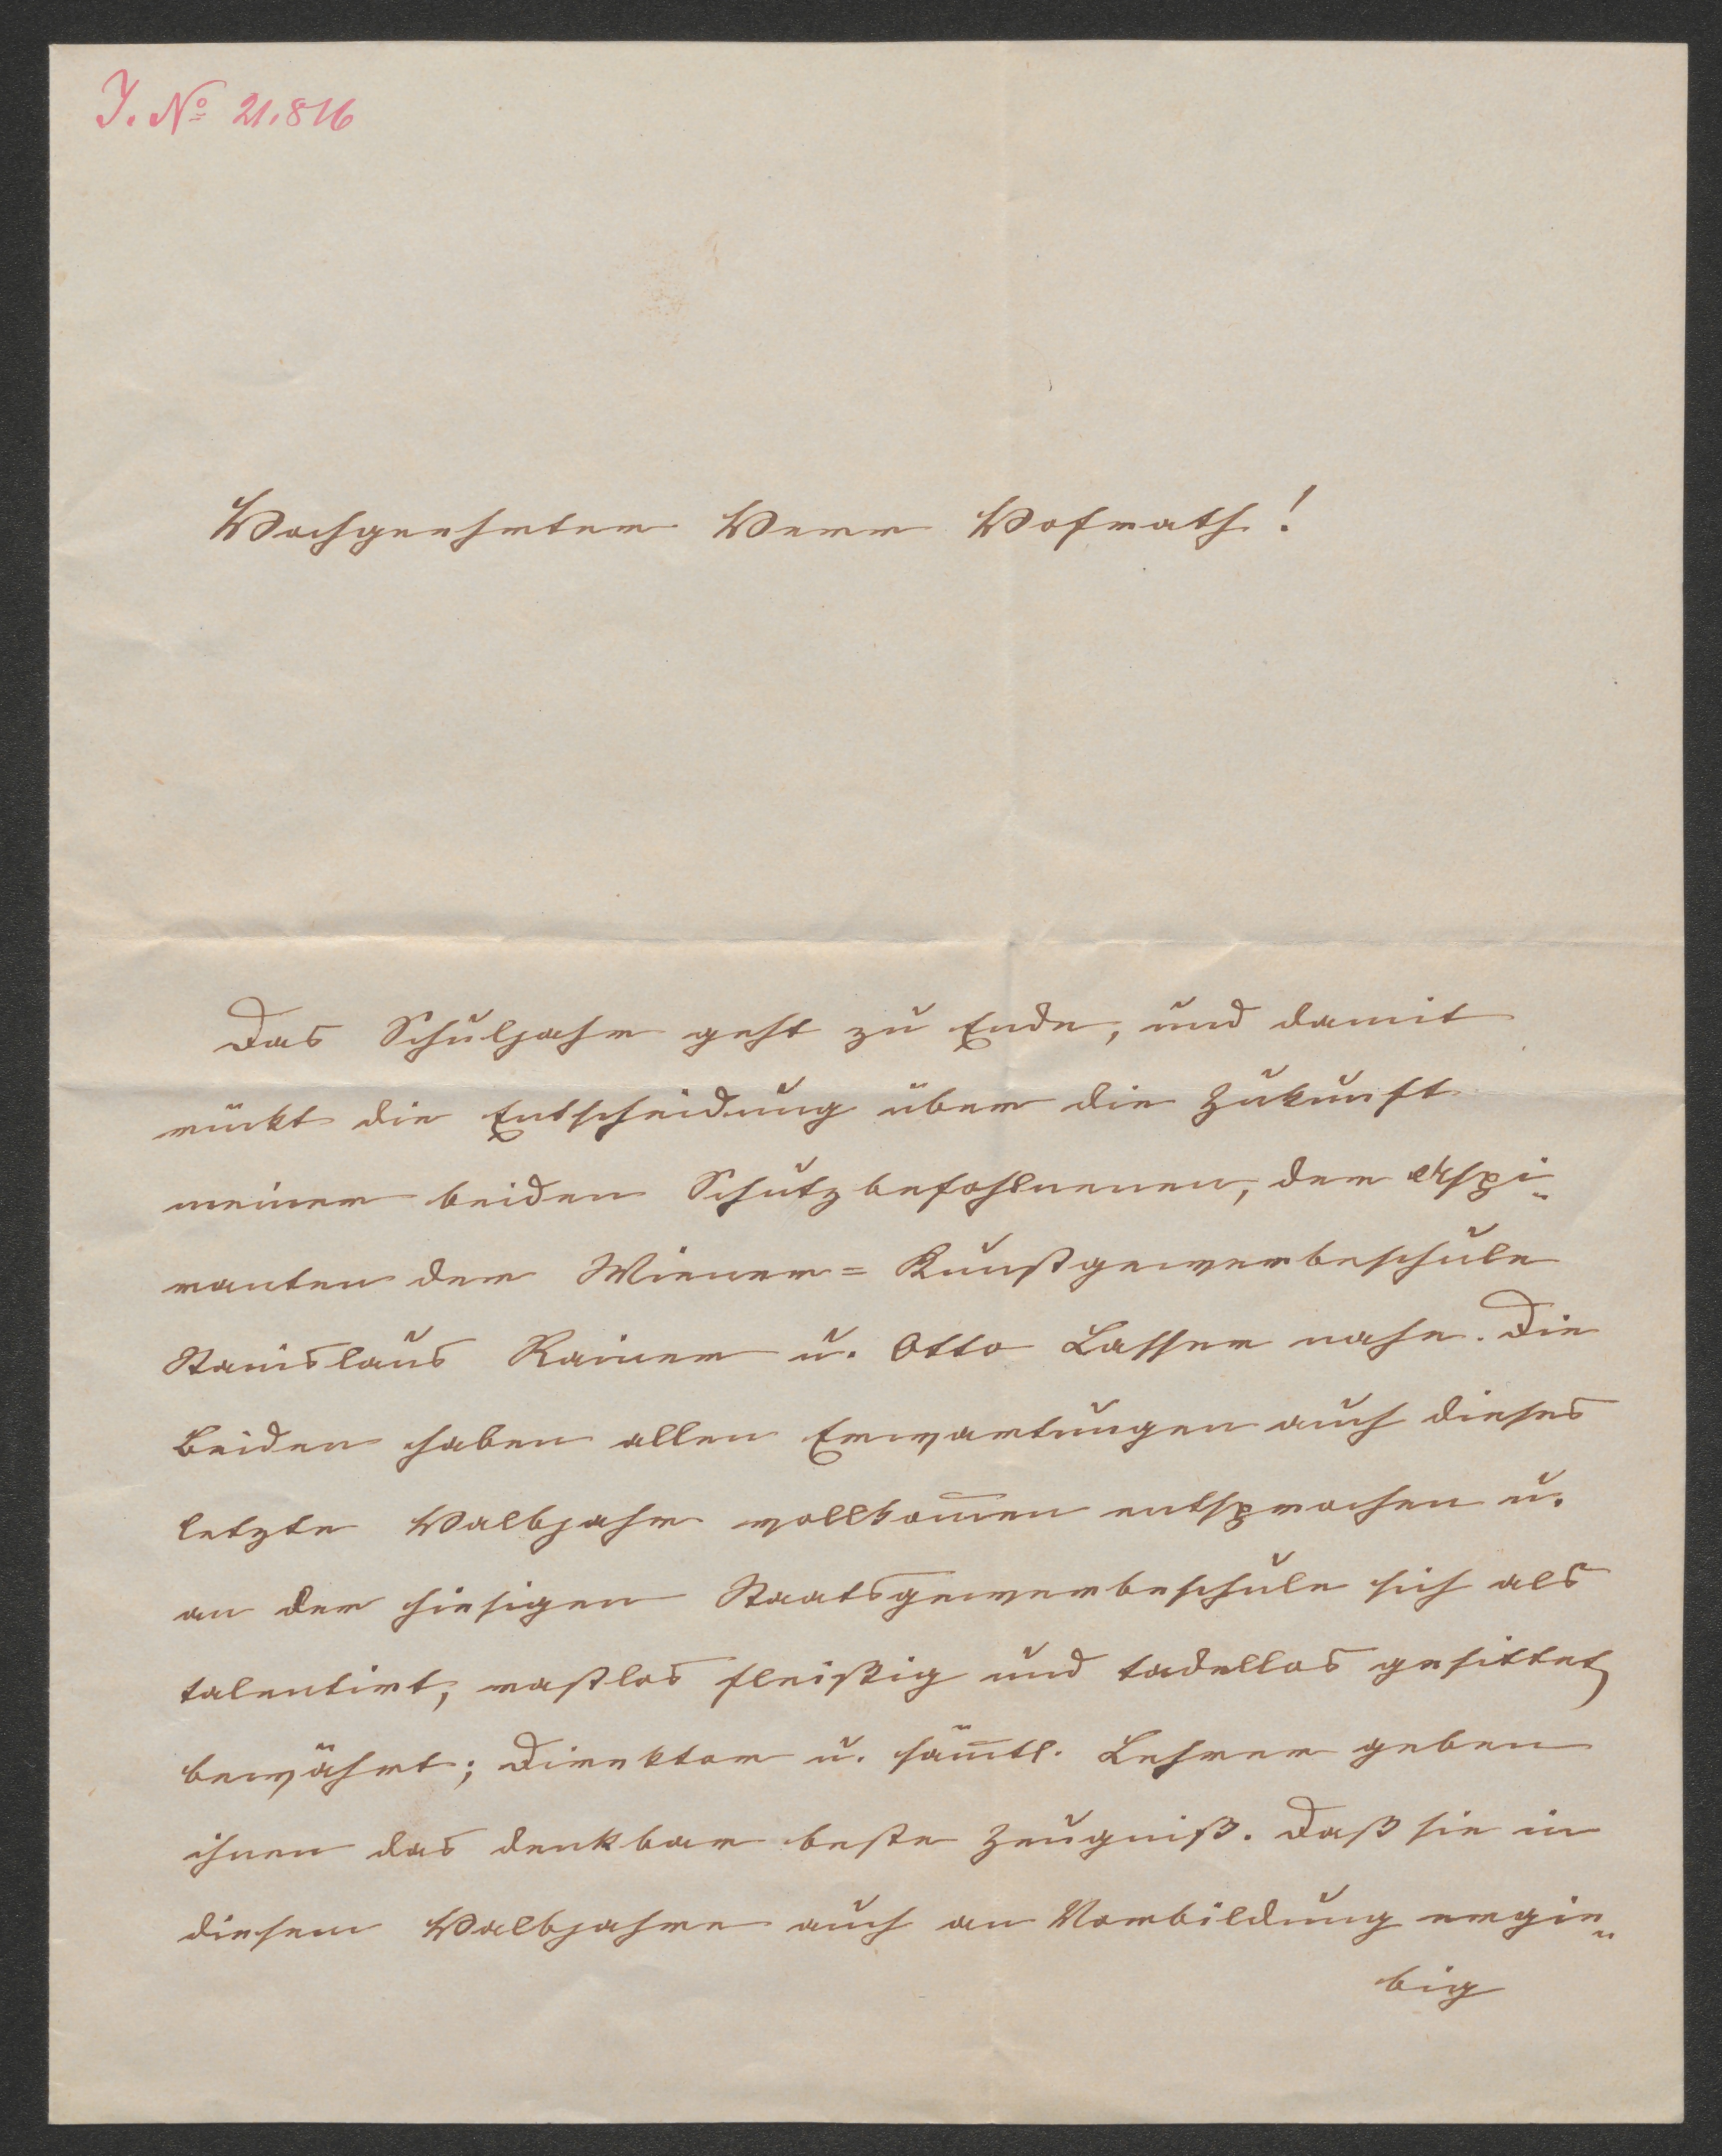 J. No 21.816
Hochgeehrter Herr Hofrath!
Das Schuljahr geht zu Ende, und damit
rückt die Entscheidung über die Zukunft
meiner beiden Schutzbefohlenen, der Aspi-
ranten der Wiener=Kunstgewerbeschule
Stanislaus Rainer u. Otto Lasser nahe. Die
Beiden haben allen Erwartungen auch dieses
letzte Halbjahr vollkom̅en entsprochen u.
an der hiesigen Staatsgewerbeschule sich als
talentirt, rastlos fleißig und tadellos gesittet
bewährt; Direktor u. säm̅tl. Lehrer geben
ihnen das denkbar beste Zeugniß. Daß sie in
diesem Halbjahre auch an Vorbildung ergie-
big